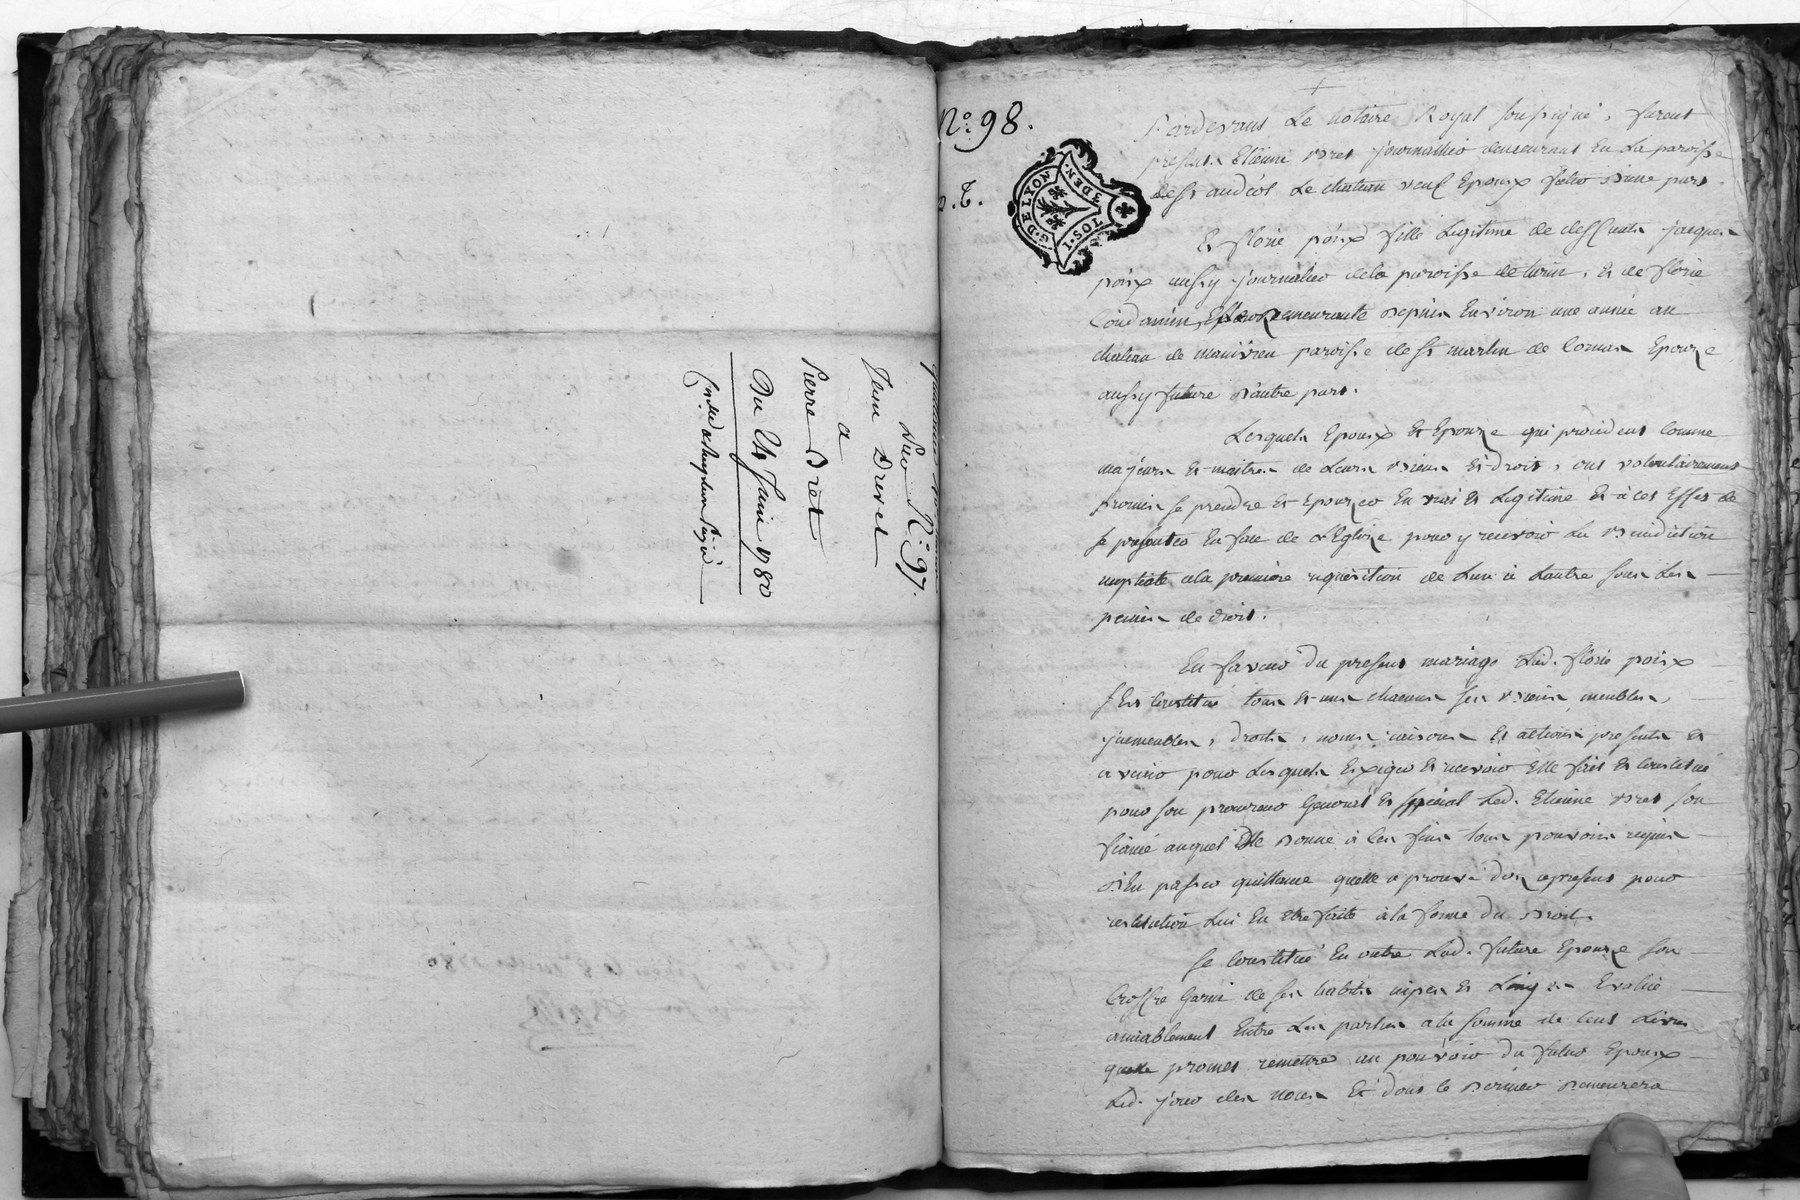 Lié N.° 97.
Jean Drevet
a
Pierre Bret
Du 24 Juin 1780
N.° 98.
G. DE LYON
3 DEN.
1. SOL
Pardevant Le notaire Royal soussigné, furent
presents Etienne Bret journallier demeurant En La paroisse
de st andéol Le chateau veuf Epoux futur D'une part.
Et florie poix fille Legitime de deffunts jacques
poix aussy journalier de la paroisse de turin, et de florie
Condamin, demeurante Depuis Environ une année au
chateau de manivieu paroisse de st martin de Cornas Epouze
aussy future D'autre part.
Lesquels Epoux Et Epouze qui procedent Comme
majeurs Et maitres de Leurs Biens Et Droits, ont volontairement
promis se prendre Et Epouzer En vrai Et Legitime Et à ces Effet de
se presenter En face de L'Eglize pour y recevoir La Benediction
nuptiale a la premiere requisition de Lun à Lautre sous Les
peines de Droit.
En faveur Du present mariage Lad. florie poix
s'Est Constitué tous Et uns chacuns ses Biens meubles,
jmmeubles, Droits, noms, raisons Et actions presents Et
a venir pour Lesquels Exiger Et recevoir Elle fait Et Constitué
pour son procureur General Et spécial Led. Etienne Bret son
fiancé auquel Elle Donne à ces fins tous pouvoirs requis
D'En passer quittance quelle approuve Dez apresent pour
restitution Lui En Etre faite à la forme Du Droit.
Se Constitué En outre Lad. future Epouze son
Coffre Garni de ses habits nipes Et Linges Evalué
amiablement Entre Les parties a la somme de cent Livres
quelle promet remettre au pouvoir Du futur Epoux
Led. jour des noces Et Dont Ce Dernier Demeurera